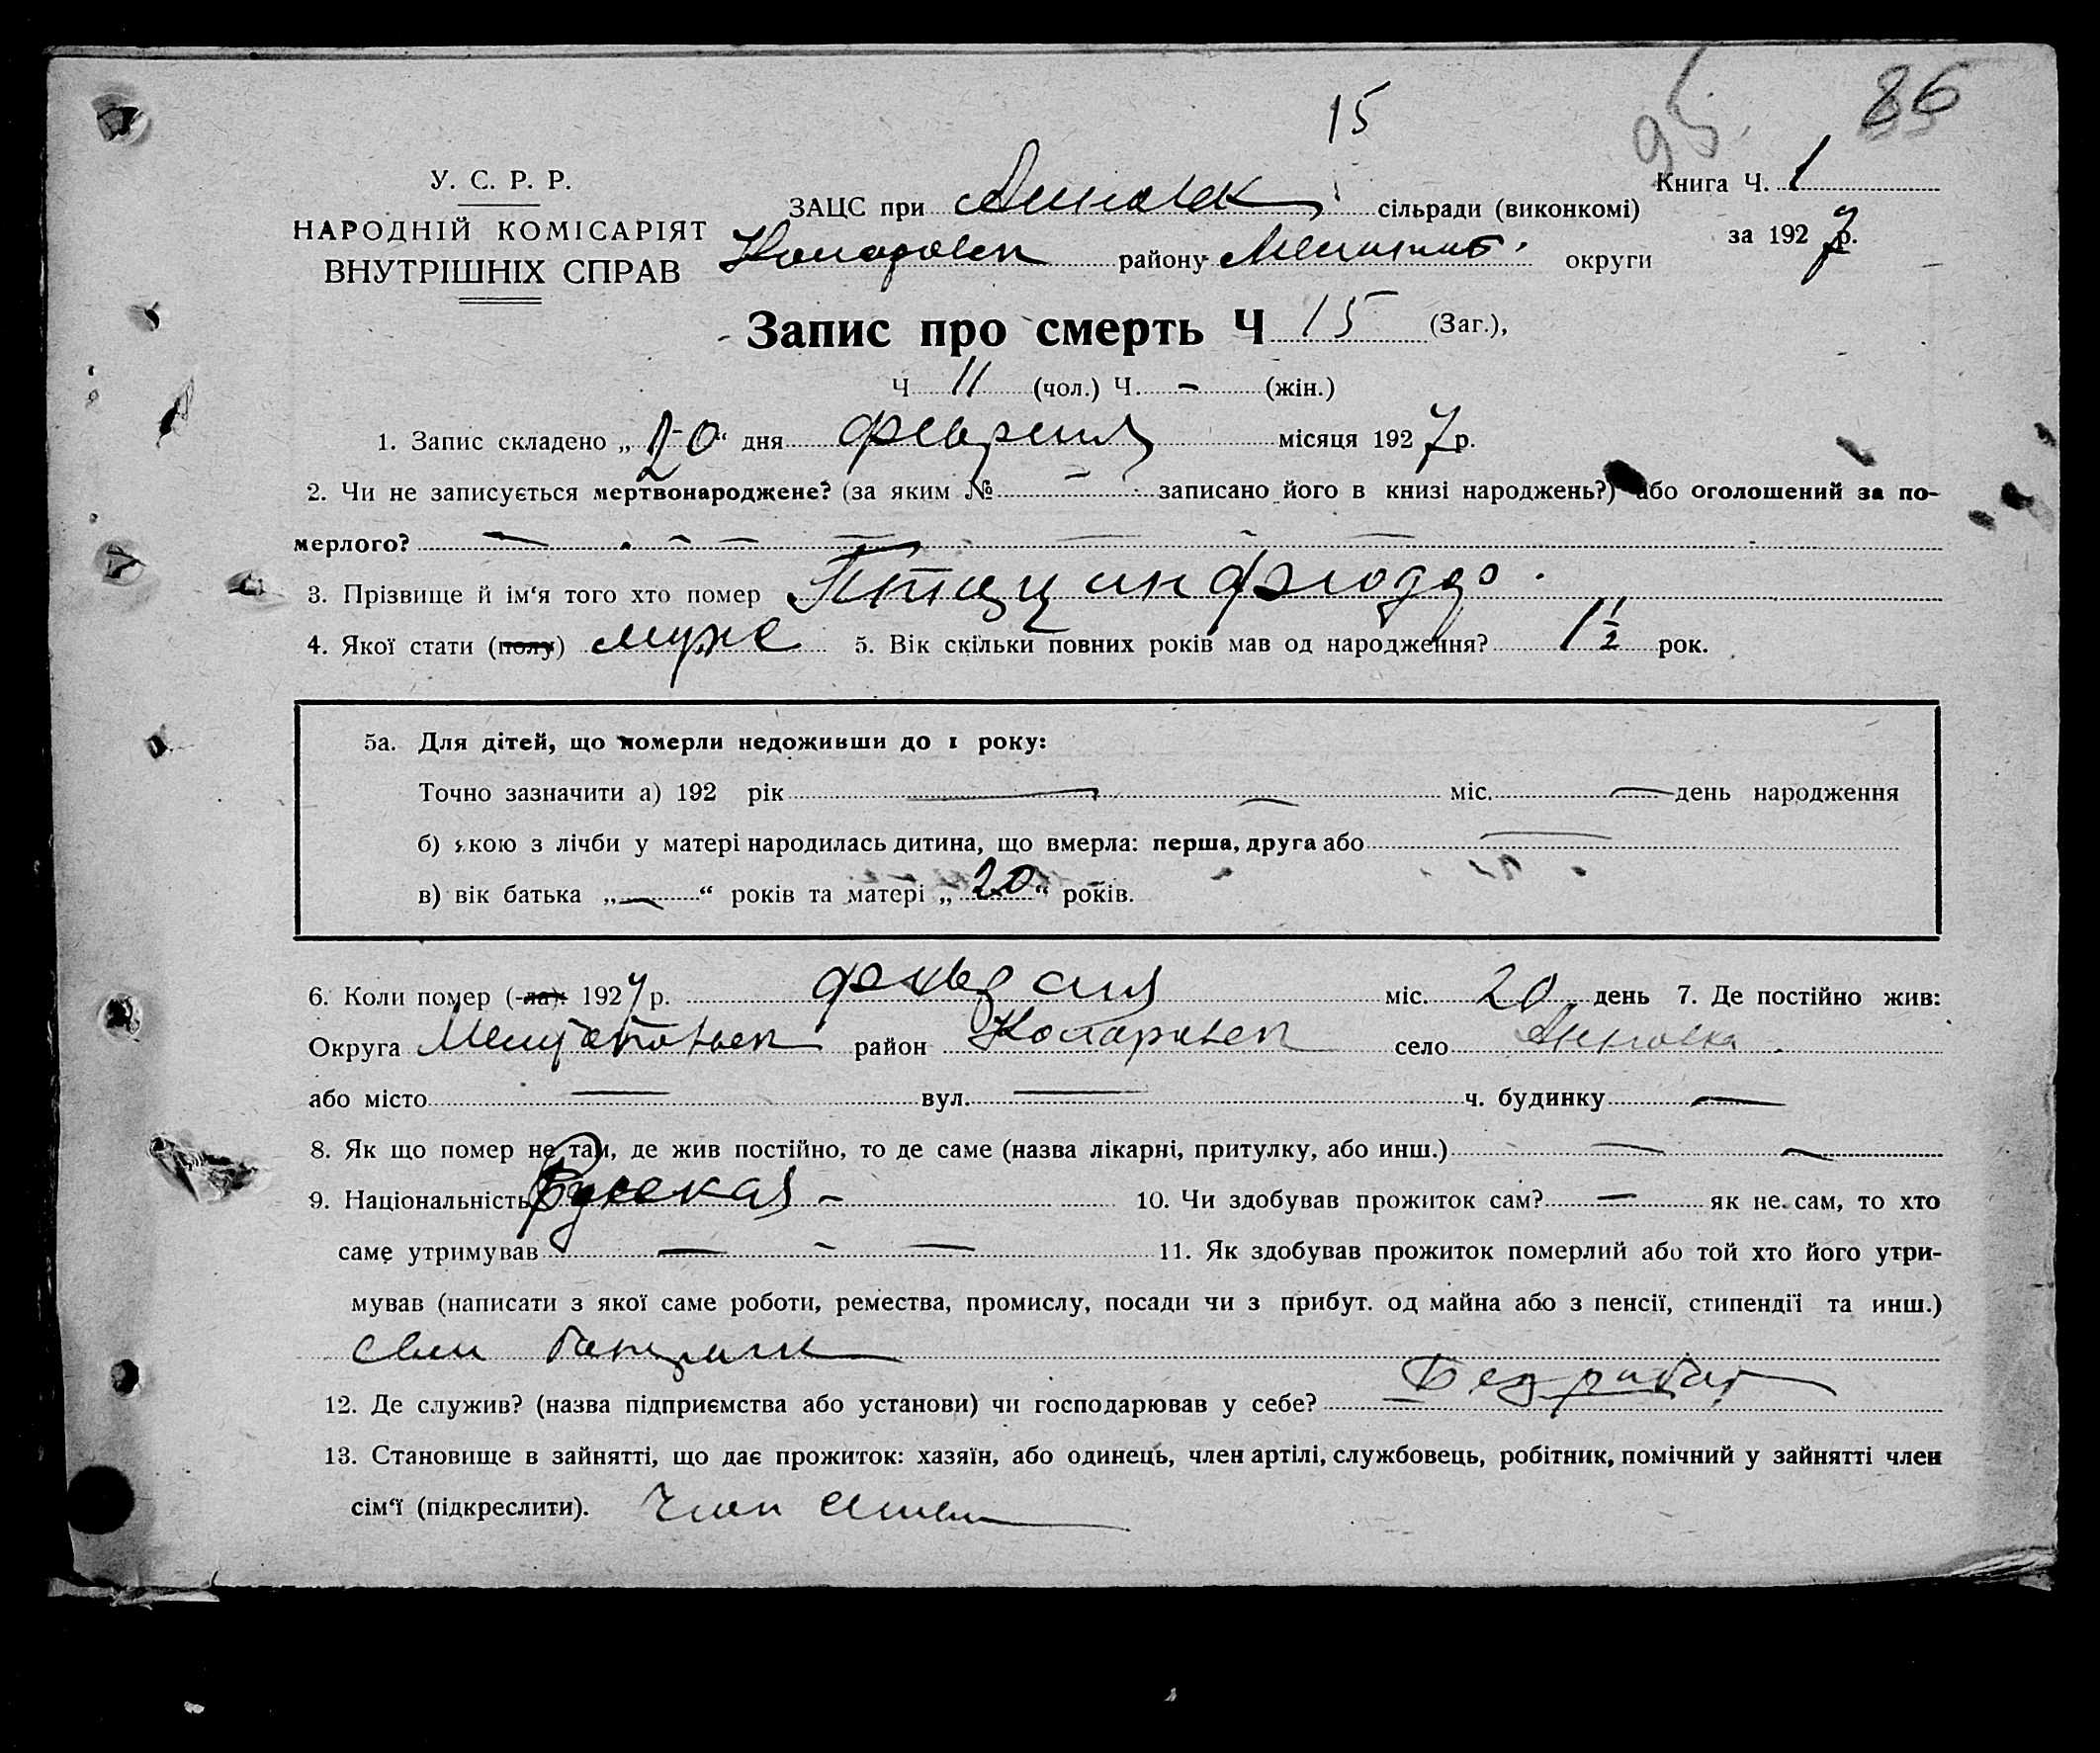 15
95.
86
У. С. Р. Р.
НАРОДНІЙ КОМІСАРІЯТ
ВНУТРІШНІХ СПРАВ
ЗАЦС при Анновск сільради (виконкомі)
Коларовск району Мелитоп округи
Книга Ч. 1
за 1927 р.
Запис про смерть Ч 15 (Заг.),
Ч 11 (чол.) Ч. - (жін.)
1. Запис складено „20“ дня февраля місяця 1927 р.
2. Чи не записується мертвонароджене? (за яким № — записано його в книзі народжень?) або оголошений за по-
мерлого? —
3. Прізвище й ім‘я того хто помер Птицин
4. Якої стати (полу) муже 5. Вік скільки повних років мав од народження? 1 1/2 рок.
5а. Для дітей, що померли недоживши до 1 року:
Точно зазначити а) 192 рік — міс. — день народження
б) якою з лічби у матері народилась дитина, що вмерла: перша, друга або —
в) вік батька „—“ років та матері „20“ років.
6. Коли помер (-ла) 1927 р. февраля міс. 20 день 7. Де постійно жив:
Округа Мелитопольск район Коларовск село Анновка
або місто — вул. — ч. будинку —
8. Як що помер не там, де жив постійно, то де саме (назва лікарні, притулку, або инш.) —
9. Національність Русская - 10. Чи здобував прожиток сам? — як не сам, то хто
саме утримував — 11. Як здобував прожиток померлий або той хто його утри-
мував (написати з якої саме роботи, ремества, промислу, посади чи з прибут. од майна або з пенсії, стипендії та инш.)
12. Де служив? (назва підприємства або установи) чи господарював у себе? Безработ
13. Становище в зайнятті, що дає прожиток: хазяїн, або одинець, член артілі, службовець, робітник, помічний у зайнятті член
сім‘ї (підкреслити). Член семьи